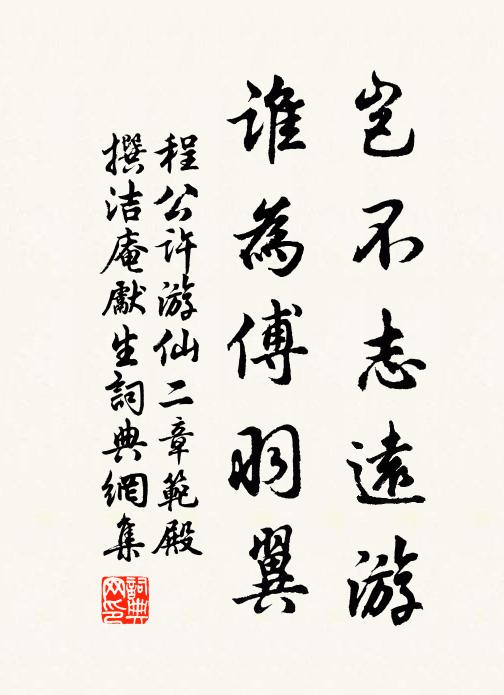 豈不志遠游
誰為傅羽翼
程公許游仙二章範殿
撰洁庵獻生詞典網集
詞典網印